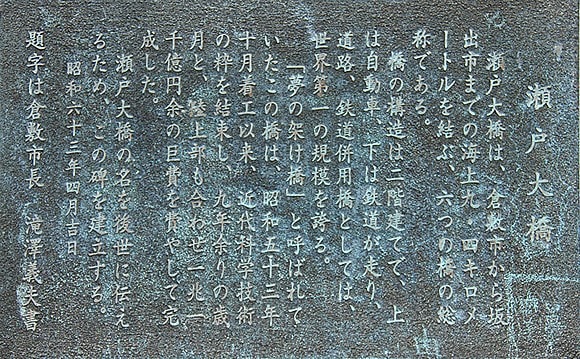 瀬戸大橋
瀬戸大橋は、倉敷市から坂
出市までの海上九・四キロメ
ートルを結ぶ、六つの橋の総
称である。
橋の構造は二階建てで、上
は自動車、下は鉄道が走り、
道路、鉄道併用橋としては、
世界第一の規模を誇る。
「夢の架け橋」と呼ばれて
いたこの橋は、昭和五十三年
十月着工以来、近代科学技術
の粋を結集し、九年余りの歳
月と、陸上部も合わせ一兆一
千億円余の巨費を費やして完
成した。
瀬戸大橋の名を後世に伝え
るため、この碑を建立する。
昭和六十三年四月吉日
題字は倉敷市長 滝澤義夫書